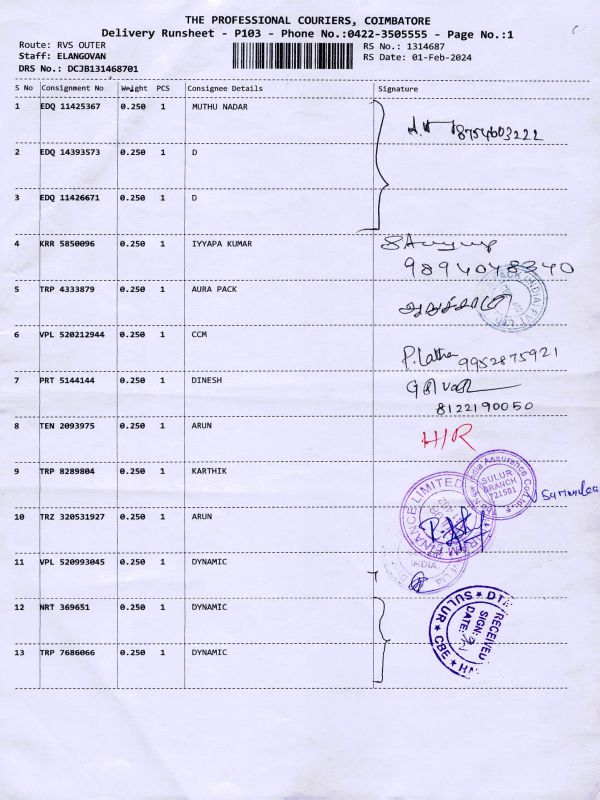 THE PROFESSIONAL COURIERS, COIMBATORE
Delivery Runsheet - P103 - Phone No.:0422-3505555 - Page No.:1
Route: RVS OUTER RS No.: 1314687
Staff: ELANGOVAN RS Date: 01-Feb-2024
DRS No.: DCJB131468701
S No Consignment No Weight PCS Consignee Details Signature
1 EDQ 11425367 0.250 1 MUTHU NADAR
8754603222
2 EDQ 14393573 0.250 1 D
3 EDQ 11426671 0.250 1 D
4 KRR 5850096 0.250 1 IYYAPA KUMAR
9894048340
5 TRP 4333879 0.250 1 AURA PACK
6 VPL 520212944 0.250 1 CCM
P. Latha 9952875921
7 PRT 5144144 0.250 1 DINESH
8122190050
8 TEN 2093975 0.250 1 ARUN
H/R
9 TRP 8289804 0.250 1 KARTHIK
India Assurance Co. Ltd.
SULUR
BRANCH
721501
10 TRZ 320531927 0.250 1 ARUN
FINANCE LIMITED
11 VPL 520993045 0.250 1 DYNAMIC
INDIA
12 NRT 369651 0.250 1 DYNAMIC
SULUR * CBE *
RECEIVED
SIGN:
DATE:
13 TRP 7686066 0.250 1 DYNAMIC